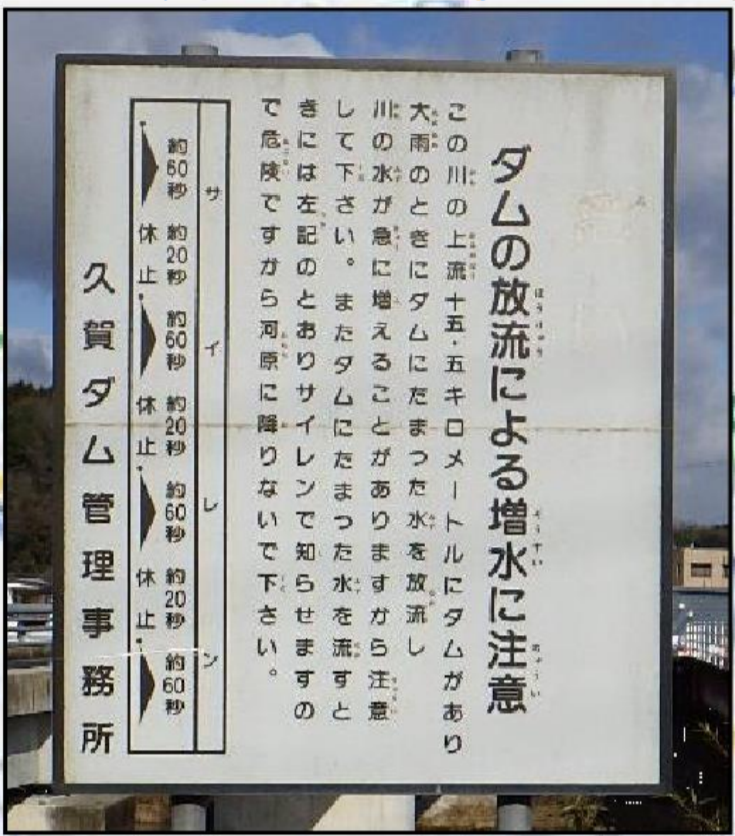 ダムの放流による増水に注意
この川の上流十五・五キロメートルにダムがあり
大雨のときにダムにたまった水を放流し
川の水が急に増えることがありますから注意
して下さい。またダムにたまった水を流すと
きには左記のとおりサイレンで知らせますの
で危険ですから河原に降りないで下さい。
サイレン
約60秒
約20秒
休止
約60秒
約20秒
休止
約60秒
約20秒
休止
約60秒
久賀ダム管理事務所